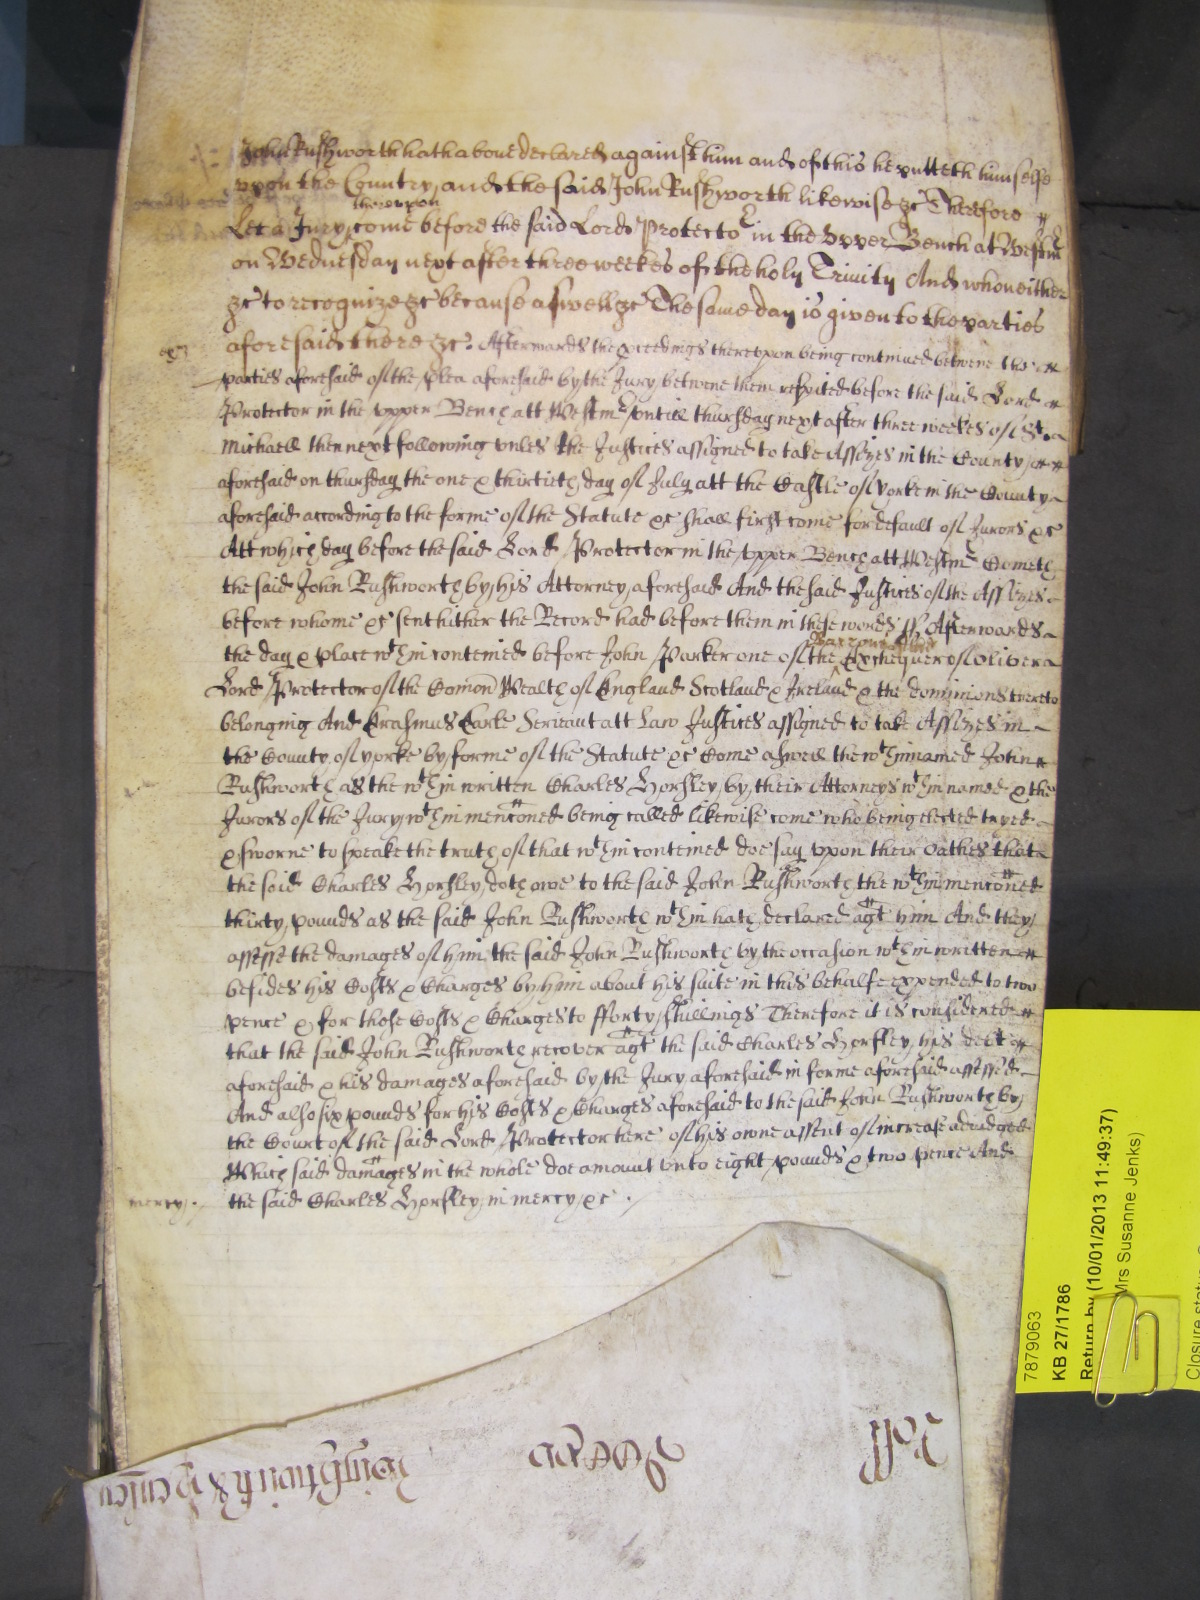 John Rushworth hath above declared against him and of this he putteth himselfe
upon the Country and the said John Rushworth likewise &c Therefore
thereupon
Let a Jury come before the said Lord Protector in the Upper Bench at Westmr
on Wednesday next after three weekes of the holy Trinity And who neither
&c to recognize &c because aswell &c The same day is given to the parties
aforesaid there &c. Afterwards the proceedings thereupon being continued betwene the
parties aforesaid of the plea aforesaid by the Jury betwene them respited before the said Lord
Protector in the upper Bench att Westmr untill thursday next after three weekes of St.
Michaell then next following unles the Justices assigned to take Assizes in the County
aforesaid on thursday the one & thirtieth day of July att the Castle of yorke in the County
aforesaid according to the forme of the Statute &c shall first come for default of Jurors &c
Att which day before the said Lord Protector in the upper Bench att Westmr Cometh
the said John Rushworth by his Attorney aforesaid And the said Justices of the Assizes
before whome &c sent hither the Record had before them in these words ss Afterwards
Barrons of the
the day & place wthin conteined before John Parker one of the Exchequer of Oliver
Lord Protector of the Comon Wealth of England Scotland & Ireland & the dominions thereto
belonging And Erasmus Earle Serieant att Law Justices assigned to take Assizes in
the County of yorke by forme of the Statute &c Come aswell the wthinnamed John
Rushworth as the wthin written Charles Horsley by their Attorneys wthin named & the
Jurors of the Jury wthin menconed being called likewise come who being elected tryed
& sworne to speake the truth of that wthin conteined doe say upon their oathes that
the said Charles Horsley doth owe to the said John Rushworth the wthin menconed
thirty pounds as the said John Rushworth wthin hath declared agt him And they
assesse the damages of him the said John Rushworth by the occasion wthin written
besides his Costs & Charges by him about his suite in this behalfe expended to two
pence & for those Costs & Charges to fforty shillings Therefore it is considered
that the said John Rushworth recover agt the said Charles Horsley his debt
aforesaid & his damages aforesaid by the Jury aforesaid in forme aforesaid assessed
And also six pounds for his Costs & Charges aforesaid to the said John Rushworth by
the Court of the said Lord Protector here of his owne assent of increase adiudged
Which said damages in the whole doe amount unto eight pounds & two pence And
mercy. the said Charles Horsley in mercy &c.
7879063
KB 27/1786
Return by (10/01/2013 11:49:37)
Mrs Susanne Jenks)
Closure status
Roll